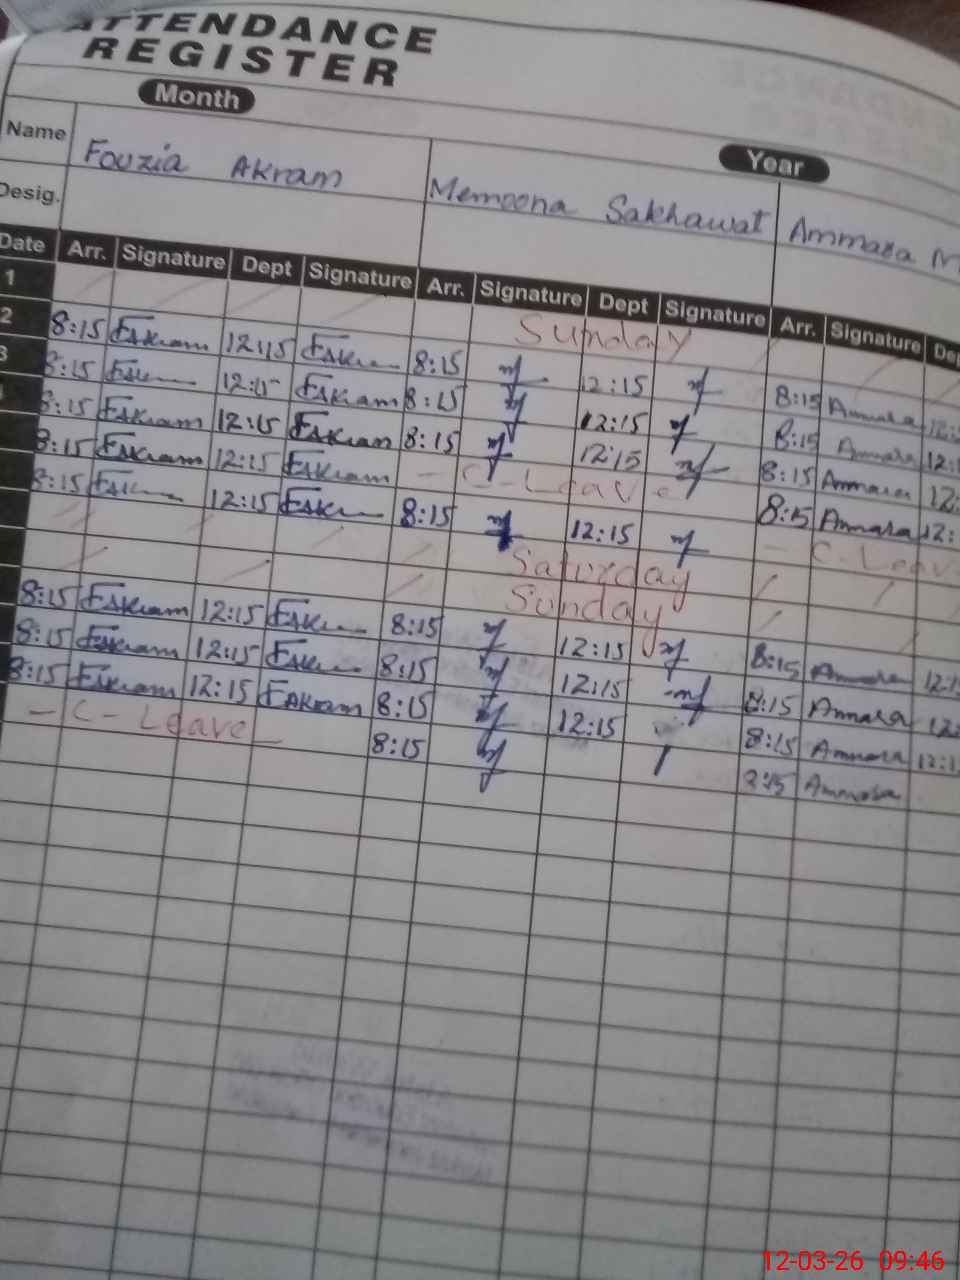 ATTENDANCE
REGISTER
Month
Year
Name Fouzia Akram Memoona Sakhawat Ammara M
Desig.
Date Arr. Signature Dept Signature Arr. Signature Dept Signature Arr. Signature Dep
1 Sunday
2 8:15 EAkram 12:15 EAk 8:15 12:15 8:15 Ammara 12:
3 8:15 EAk 12:15 EAkram 8:15 12:15 8:15 Ammara 12:
8:15 EAkram 12:15 EAkram 8:15 12:15 8:15 Ammara 12:
8:15 EAkram 12:15 EAkram - C-Leave 8:15 Ammara 12:
8:15 EAk 12:15 EAk 8:15 12:15 - C-Leav
Saturday
Sunday
8:15 EAkram 12:15 EAk 8:15 12:15 8:15 Ammara 12:1
8:15 EAkram 12:15 EAk 8:15 12:15 8:15 Ammara 12:
8:15 EAkram 12:15 EAkram 8:15 12:15 8:15 Ammara 12:1
- C-Leave - 8:15 8:15 Ammara
12-03-26 09:46